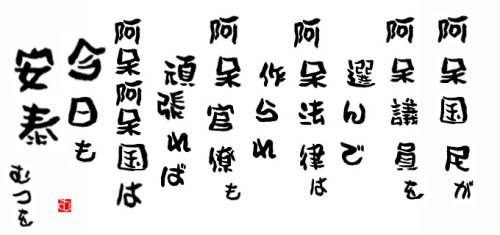 阿呆国民が
阿呆議員を
選んで
阿呆法律は
作られ
阿呆官僚も
頑張れば
阿呆阿呆国は
今日も
安泰
むつを
む